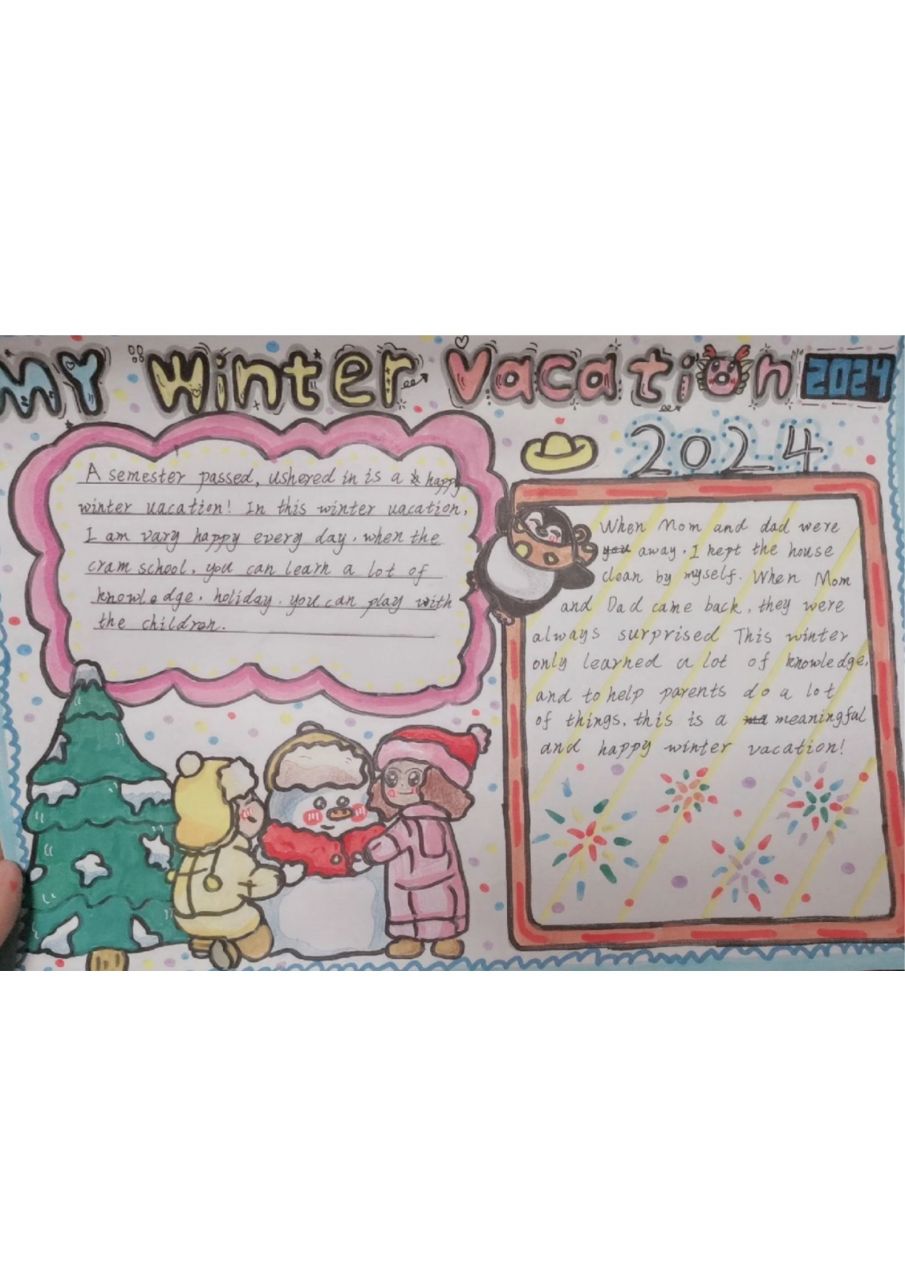 MY Winter Vacation 2024
2024
A semester passed, ushered in is a happy
winter uacation! In this winter uacation,
I am vary happy every day. when the
cram school, you can learn a lot of
knowledge. holiday. you can play with
the children.
When Mom and dad were
you away. I kept the house
clean by myself. When Mom
and Dad came back, they were
always surprised This winter
only learned a lot of knowledge,
and to help parents do a lot
of things, this is a meaningfal
and happy winter vacation!